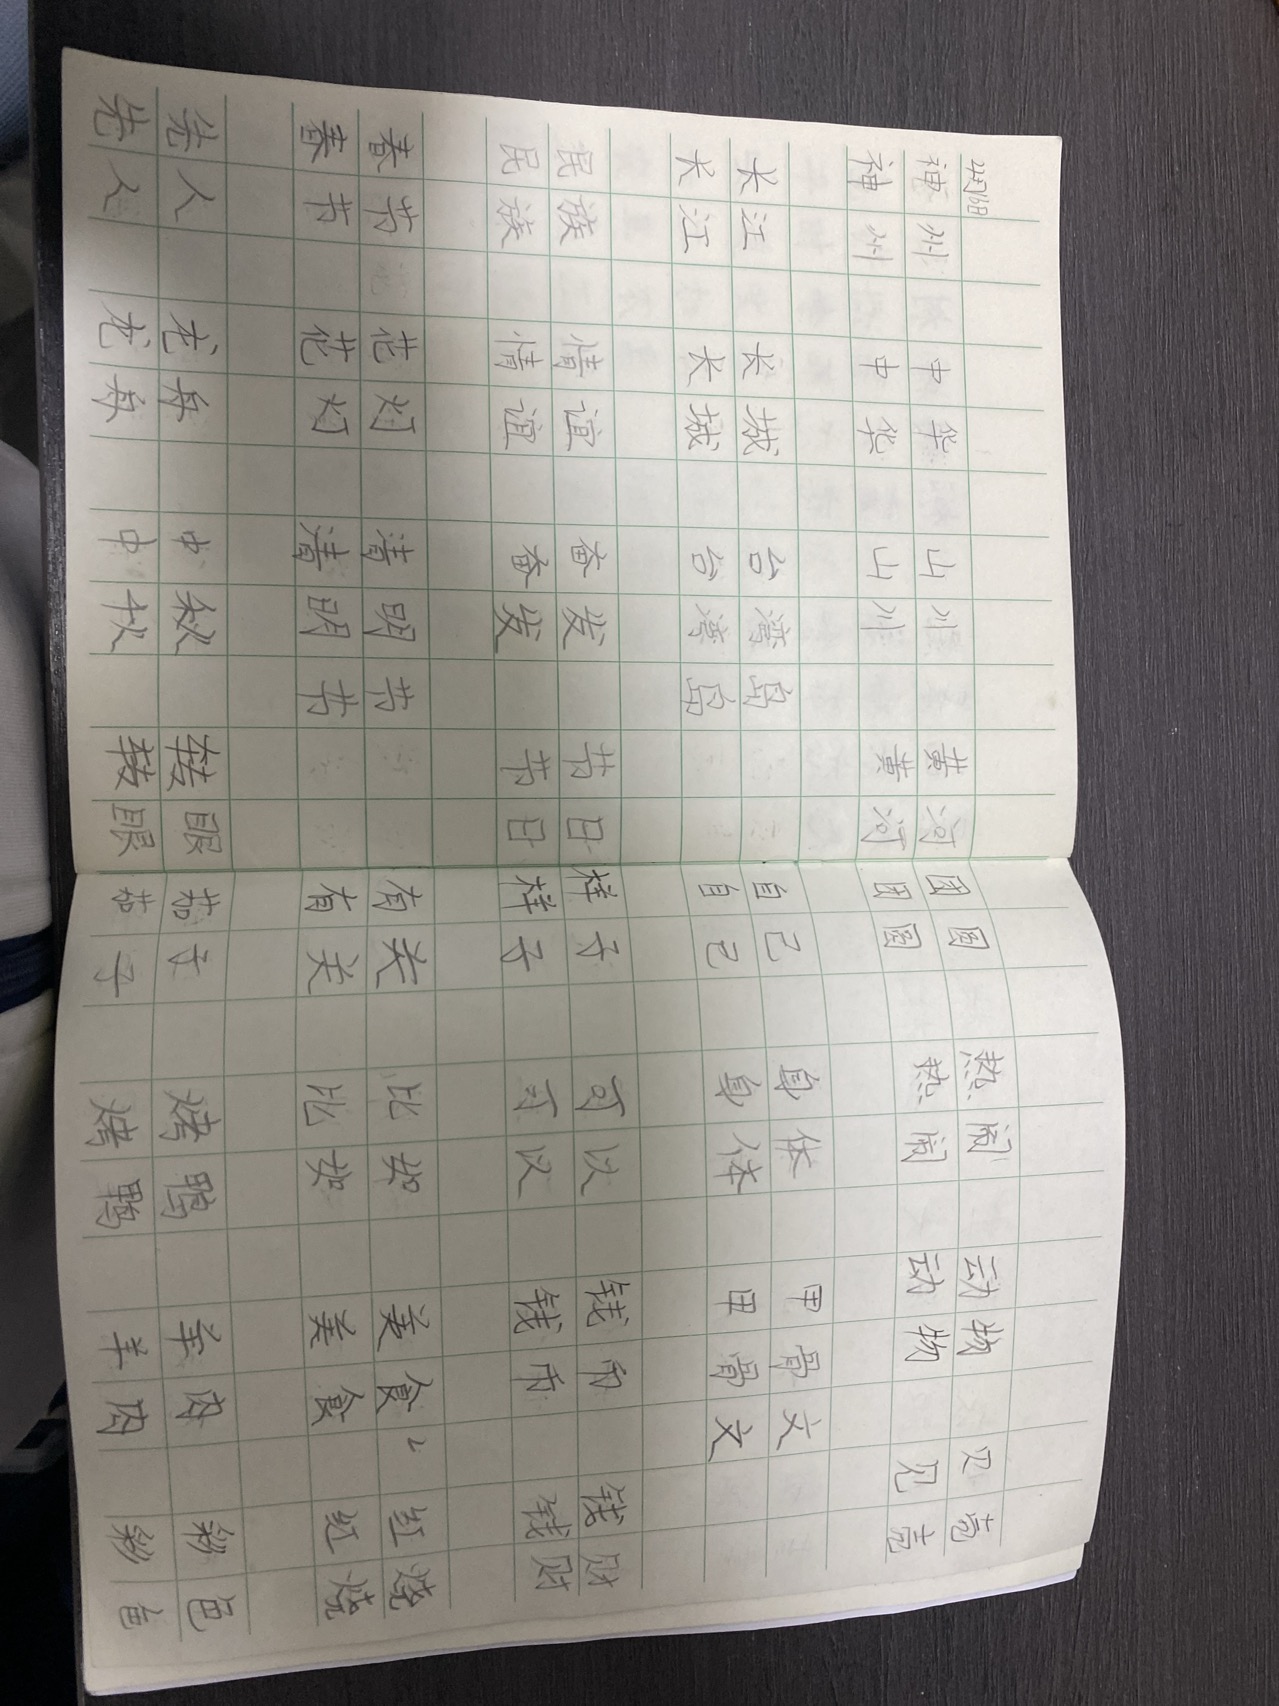 神州 中华 山川 黄河
神州 中华 山川 黄河
长江 长城 台湾岛
长江 长城 台湾岛
民族 情谊 奋发 节日
民族 情谊 奋发 节日
春节 花灯 清明节
春节 花灯 清明节
先人 龙舟 中秋 转眼
先人 龙舟 中秋 转眼
团圆 热闹 动物 贝壳
团圆 热闹 动物 贝壳
自己 身体 甲骨文
自己 身体 甲骨文
样子 可以 钱币 钱财
样子 可以 钱币 钱财
有关 比如 美食 红烧
有关 比如 美食 红烧
茄子 烤鸭 羊肉 彩色
茄子 烤鸭 羊肉 彩色